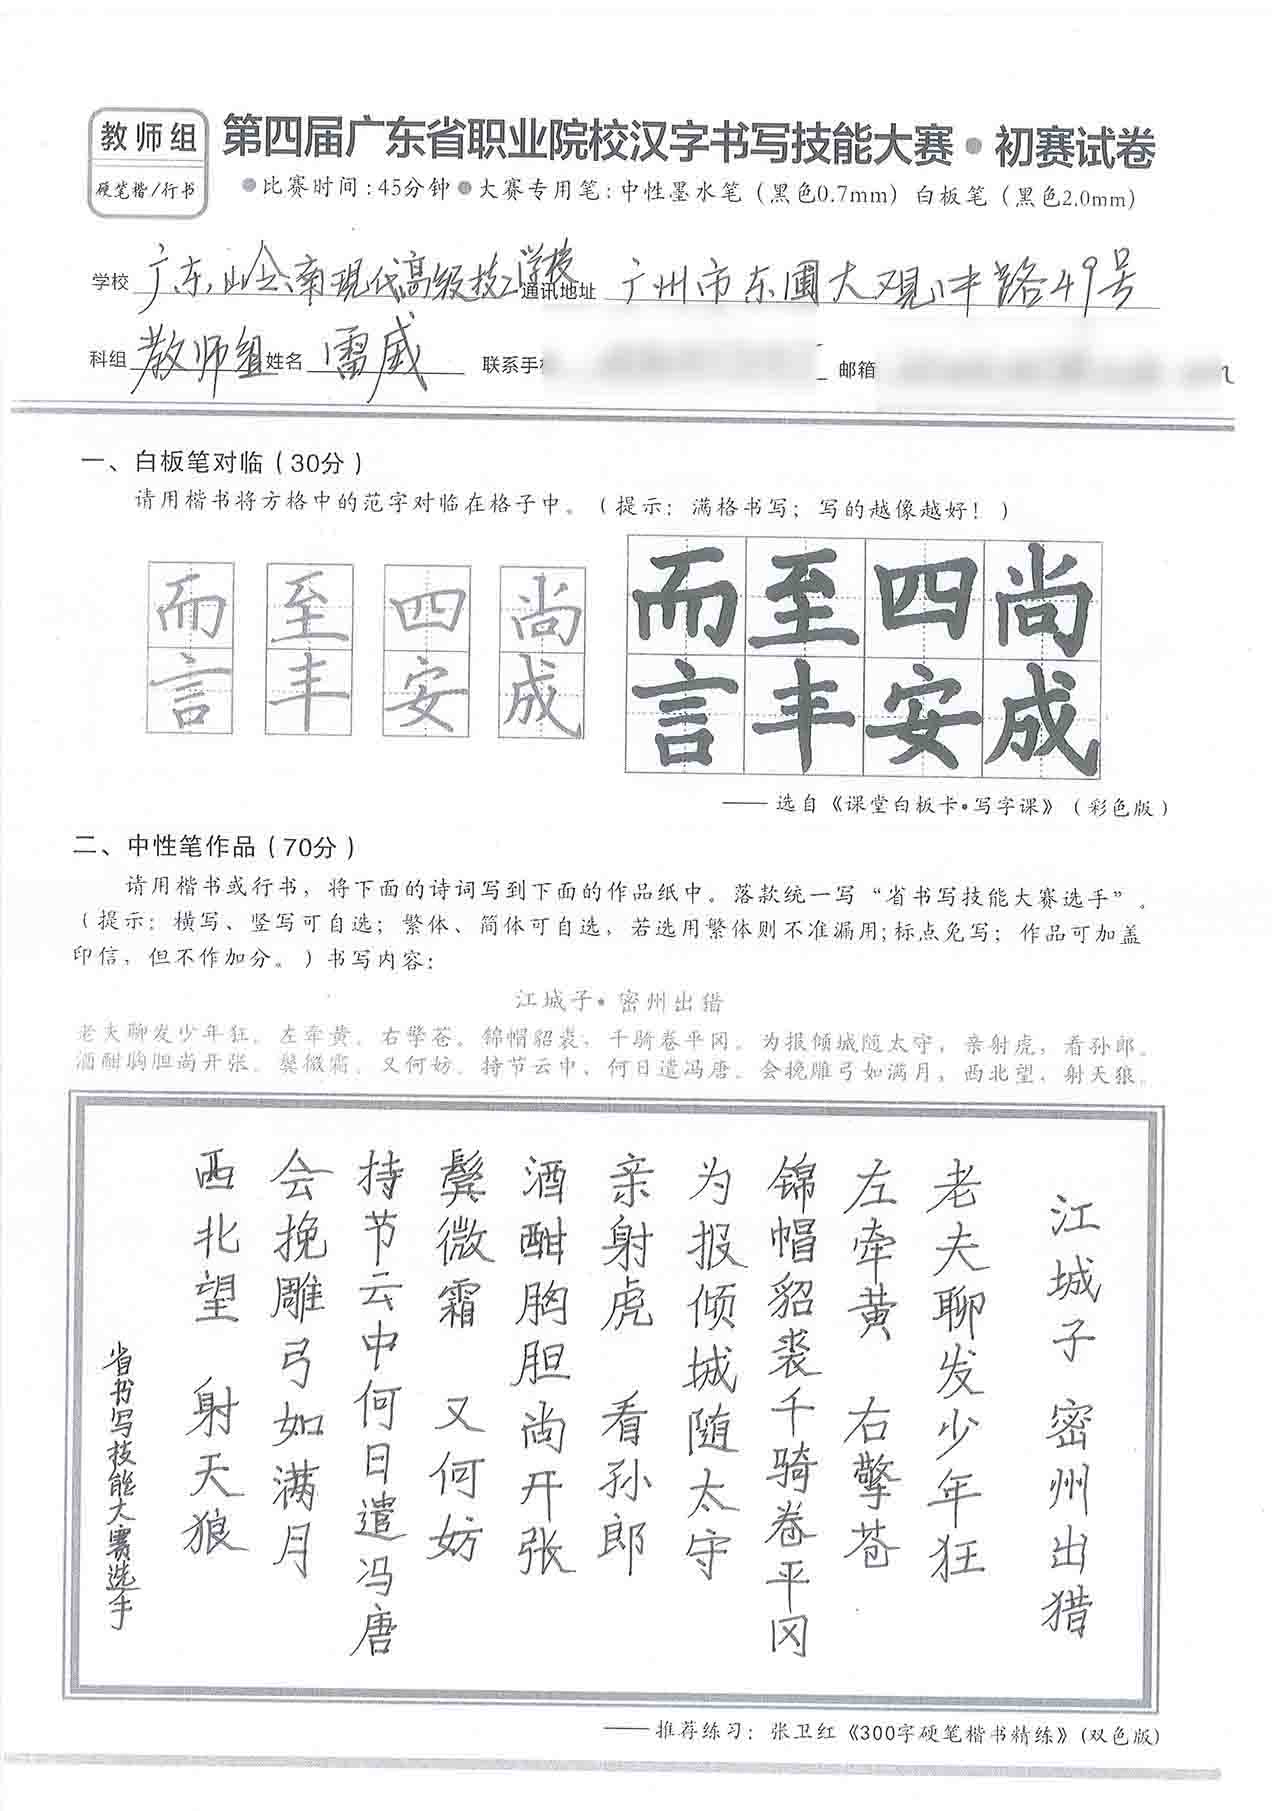 教师组
硬笔楷/行书
第四届广东省职业院校汉字书写技能大赛•初赛试卷
●比赛时间:45分钟●大赛专用笔:中性墨水笔（黑色0.7mm）白板笔（黑色2.0mm）
学校 广东岭南现代高级技工学校 通讯地址 广州市东圃大观中路49号
科组 教师组 姓名 雷威 联系手 邮箱
一、白板笔对临（30分）
请用楷书将方格中的范字对临在格子中。（提示：满格书写；写的越像越好！）
而 至 四 尚 而至四尚
言 丰 安 成 言丰安成
——选自《课堂白板卡•写字课》（彩色版）
二、中性笔作品（70分）
请用楷书或行书，将下面的诗词写到下面的作品纸中。落款统一写“省书写技能大赛选手”。
（提示：横写、竖写可自选；繁体、简体可自选，若选用繁体则不准漏用;标点免写；作品可加盖
印信，但不作加分。）书写内容：
江城子•密州出猎
老夫聊发少年狂。左牵黄。右擎苍。锦帽貂裘，千骑卷平冈。为报倾城随太守，亲射虎，看孙郎。
酒酣胸胆尚开张。鬓微霜。又何妨。持节云中，何日遣冯唐。会挽雕弓如满月，西北望，射天狼。
江城子 密州出猎
老夫聊发少年狂
左牵黄 右擎苍
锦帽貂裘千骑卷平冈
为报倾城随太守
亲射虎 看孙郎
酒酣胸胆尚开张
鬓微霜 又何妨
持节云中何日遣冯唐
会挽雕弓如满月
西北望 射天狼
省书写技能大赛选手
——推荐练习：张卫红《300字硬笔楷书精练》(双色版)